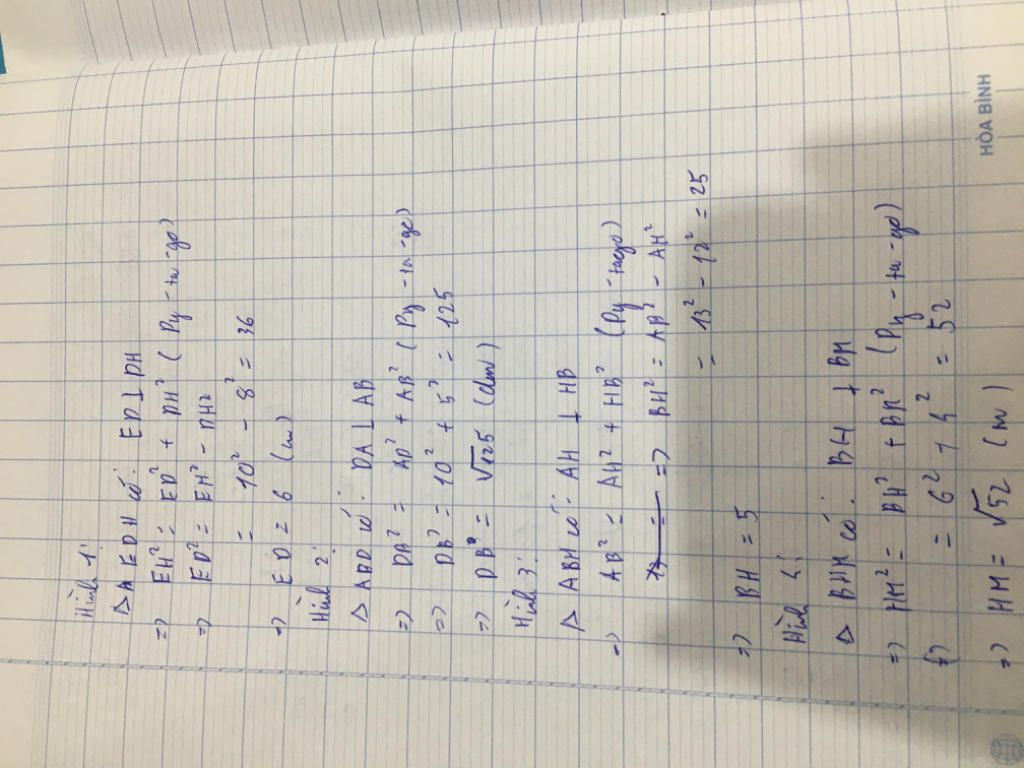 Hình 1:
Δ EDH có: ED ⊥ DH
=> EH² = ED² + DH² (Py-ta-go)
=> ED² = EH² - DH²
= 10² - 8² = 36
=> ED = 6 (m)
Hình 2:
Δ ABD có: DA ⊥ AB
=> DB² = AD² + AB² (Py-ta-go)
=> DB² = 10² + 5² = 125
=> DB = √125 (dm)
Hình 3:
Δ ABH có: AH ⊥ HB
=> AB² = AH² + HB² (Py-tago)
=> BH² = AB² - AH²
= 13² - 12² = 25
=> BH = 5
Hình 4:
Δ BHM có: BH ⊥ BM
=> HM² = BH² + BM² (Py-ta-go)
= 6² + 4² = 52
=> HM = √52 (m)
HÒA BÌNH